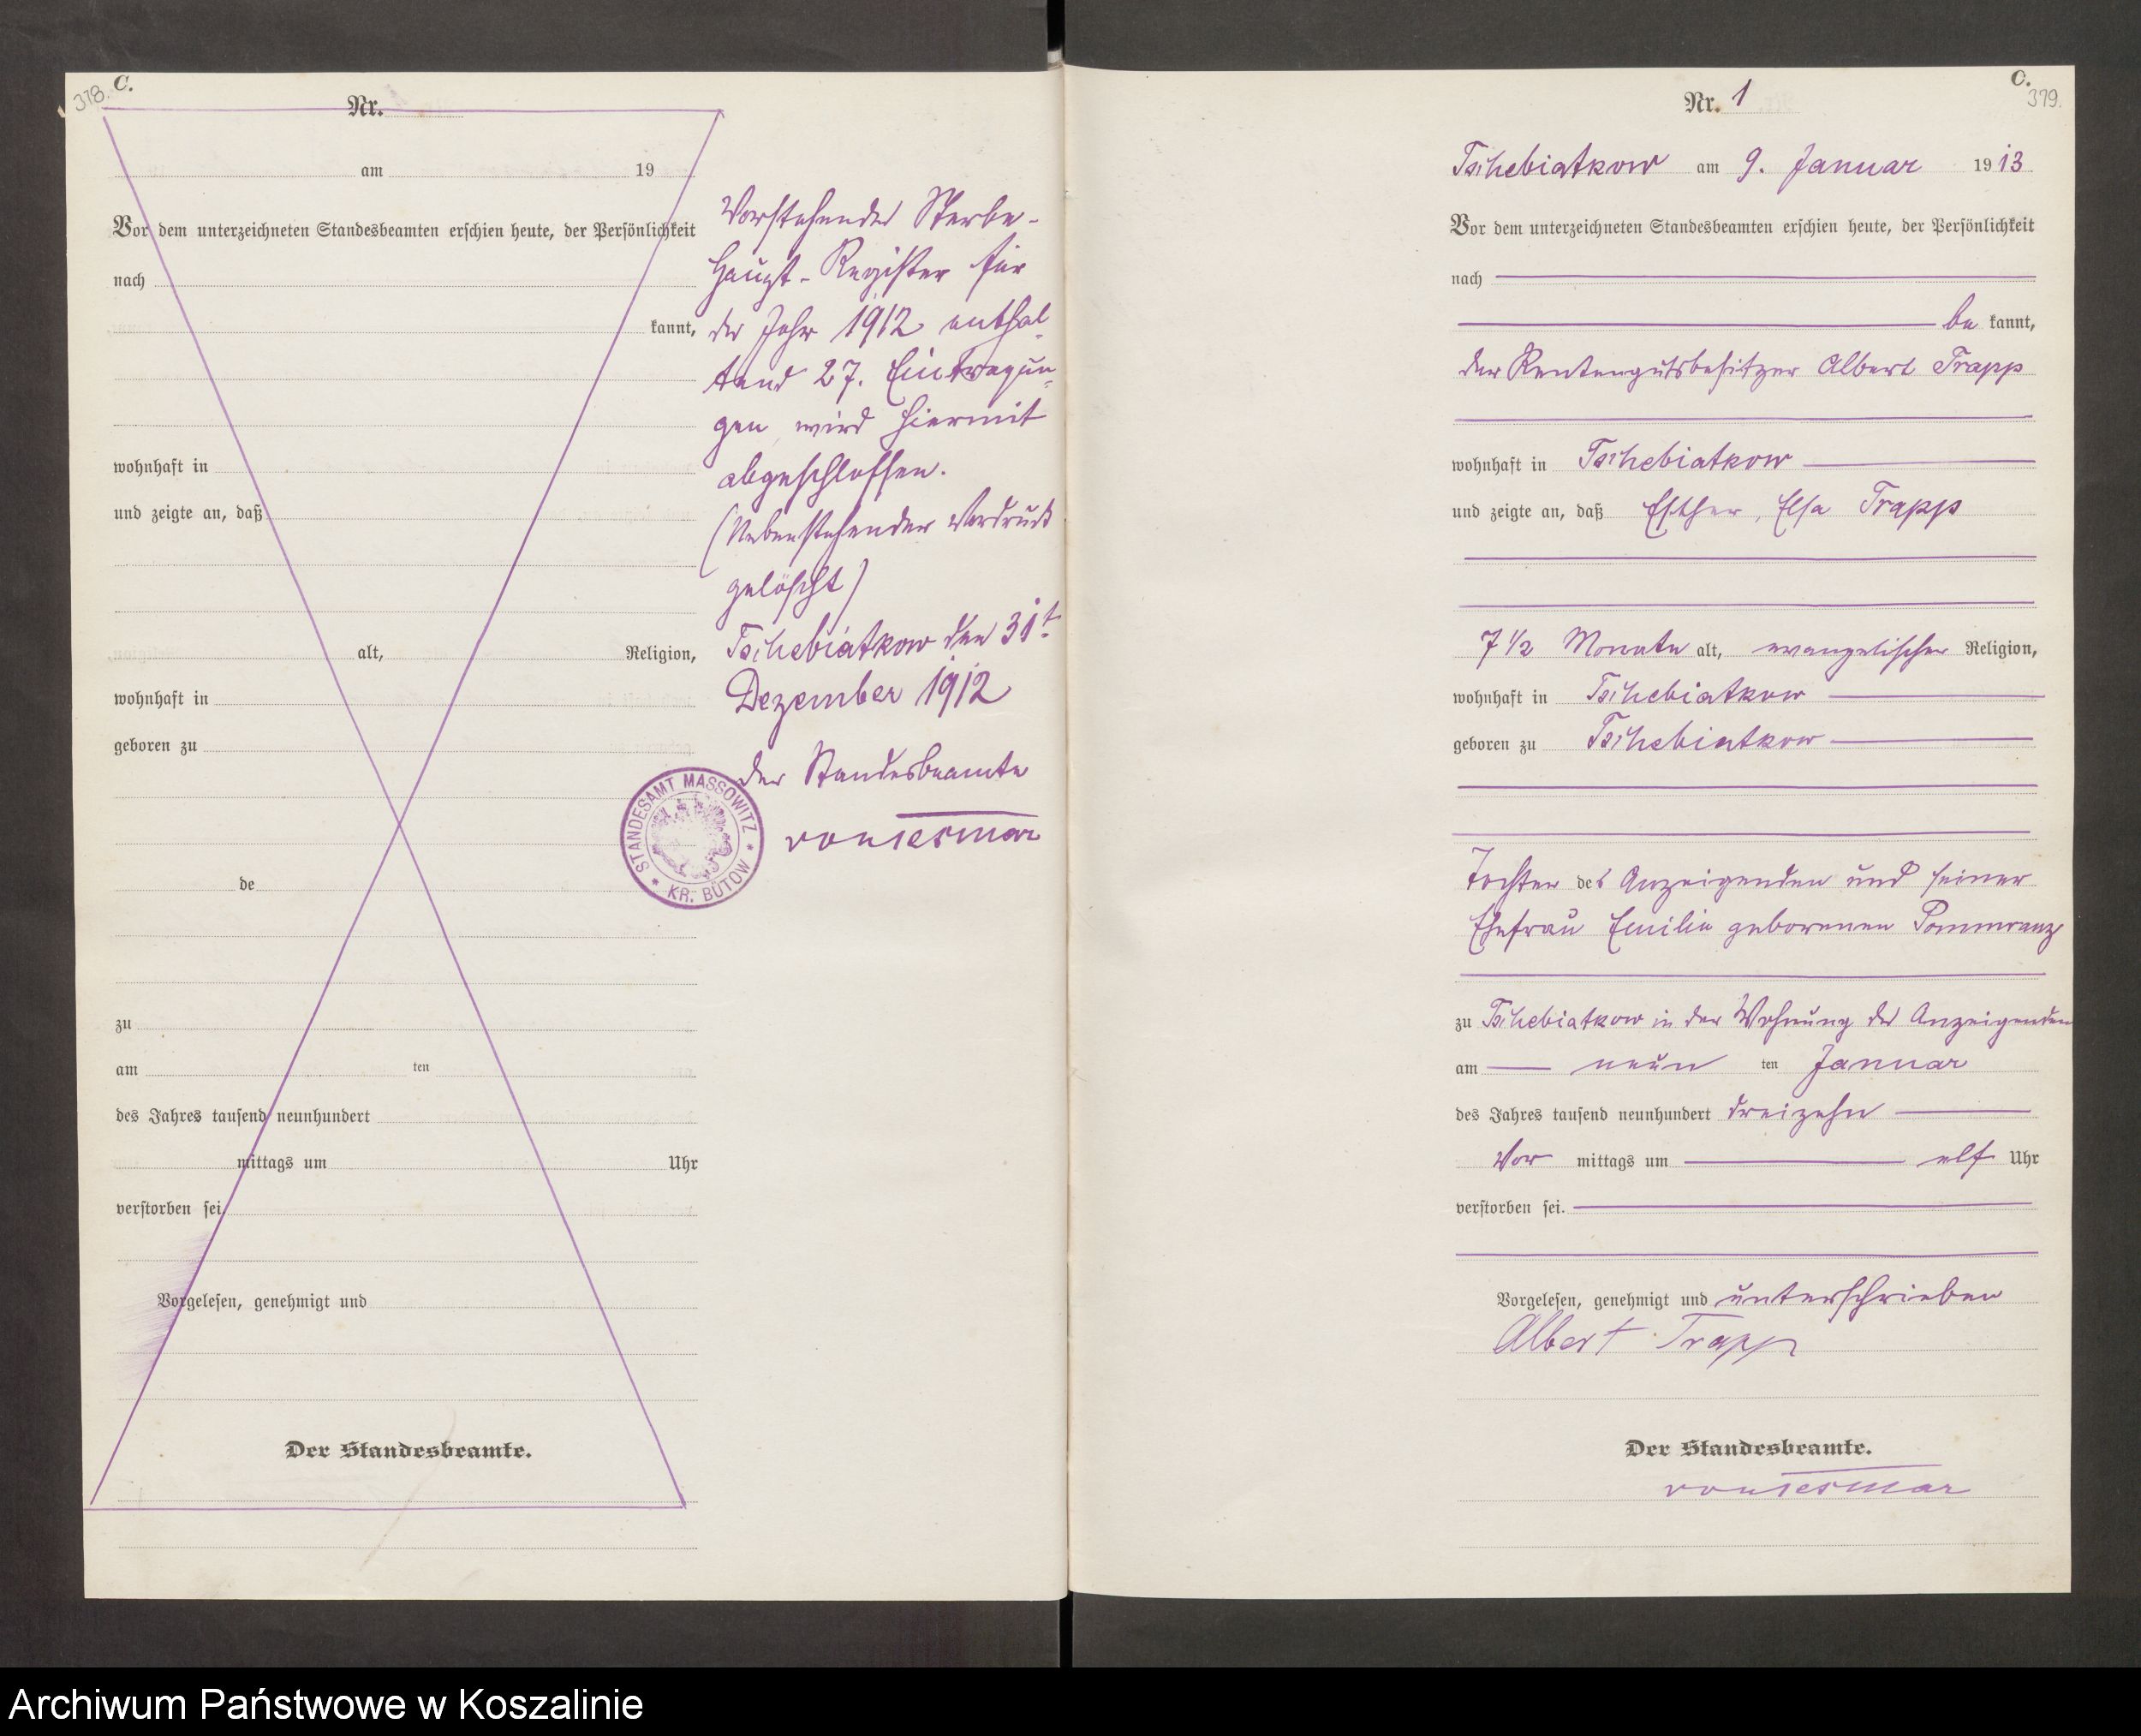 378.
C.
Nr.
am 19
Vor dem unterzeichneten Standesbeamten erschien heute, der Persönlichkeit
nach
kannt,
wohnhaft in
und zeigte an, daß
alt, Religion,
wohnhaft in
geboren zu
de
zu
am ten
des Jahres tausend neunhundert
mittags um Uhr
verstorben sei
Vorgelesen, genehmigt und
Der Standesbeamte.
Vorstehendes Sterbe-
Haupt-Register für
das Jahr 1912 enthal-
tend 27. Eintragun-
gen wird hiermit
abgeschlossen.
(Nebenstehender Vordruck
gelöscht)
Tschebiatkow den 31t.
Dezember 1912
Der Standesbeamte
von Tesmar
STANDESAMT MASSOWITZ
* KR. BÜTOW *
C.
379.
Nr. 1
Tschebiatkow am 9. Januar 1913
Vor dem unterzeichneten Standesbeamten erschien heute, der Persönlichkeit
nach
be kannt,
der Rentengutsbesitzer Albert Trapp
wohnhaft in Tschebiatkow
und zeigte an, daß Esther, Elsa Trapp
7 1/2 Monate alt, evangelischer Religion,
wohnhaft in Tschebiatkow
geboren zu Tschebiatkow
Tochter des Anzeigenden und seiner
Ehefrau Emilie geborenen Pommranz
zu Tschebiatkow in der Wohnung des Anzeigenden
am neun ten Januar
des Jahres tausend neunhundert dreizehn
Vor mittags um elf Uhr
verstorben sei.
Vorgelesen, genehmigt und unterschrieben
Albert Trapp
Der Standesbeamte.
von Tesmar
Archiwum Państwowe w Koszalinie